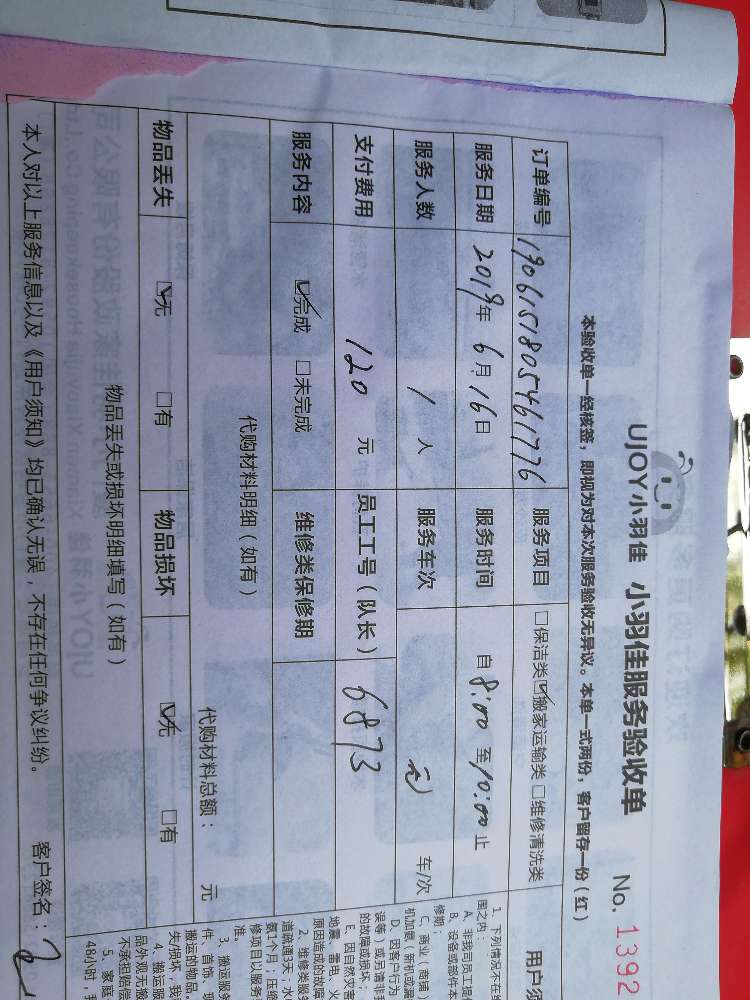 UJOY小羽佳 小羽佳服务验收单 No. 1392
本验收单一经核签，即视为对本次服务验收无异议。本单一式两份，客户留存一份（红）
订单编号 190615180546１776 服务项目 □保洁类☑搬家运输类□维修清洗类
服务日期 2019年6月16日 服务时间 自8:00至10:00止
服务人数 1人 服务车次 车/次
支付费用 120元 员工工号（队长） 6873
服务内容 ☑完成 □未完成 维修类保修期
代购材料明细（如有） 代购材料总额： 元
物品丢失 ☑无 □有 物品损坏 ☑无 □有
物品丢失或损坏明细填写（如有）
本人对以上服务信息以及《用户须知》均已确认无误，不存在任何争议纠纷。 客户签名：
用户须
1、下列情况不在
围之内：
A、非我司员工提
B、设备或部件本
修期；
C、商业（商铺）
机加氨（新机或漏
D、因客户行为
误等）或另请非
的故障或损坏；
E、因自然灾害
地震、雷电、火
原因造成的故障
2、维修类服务
道疏通3天；水
氨1个月；压缩
修项目以服务
准。
3、搬运服务
件、首饰、现
搬运的物品，
失/损坏，我
4、搬运服
品外观无搬
不承担赔偿
5、家庭
48小时，我